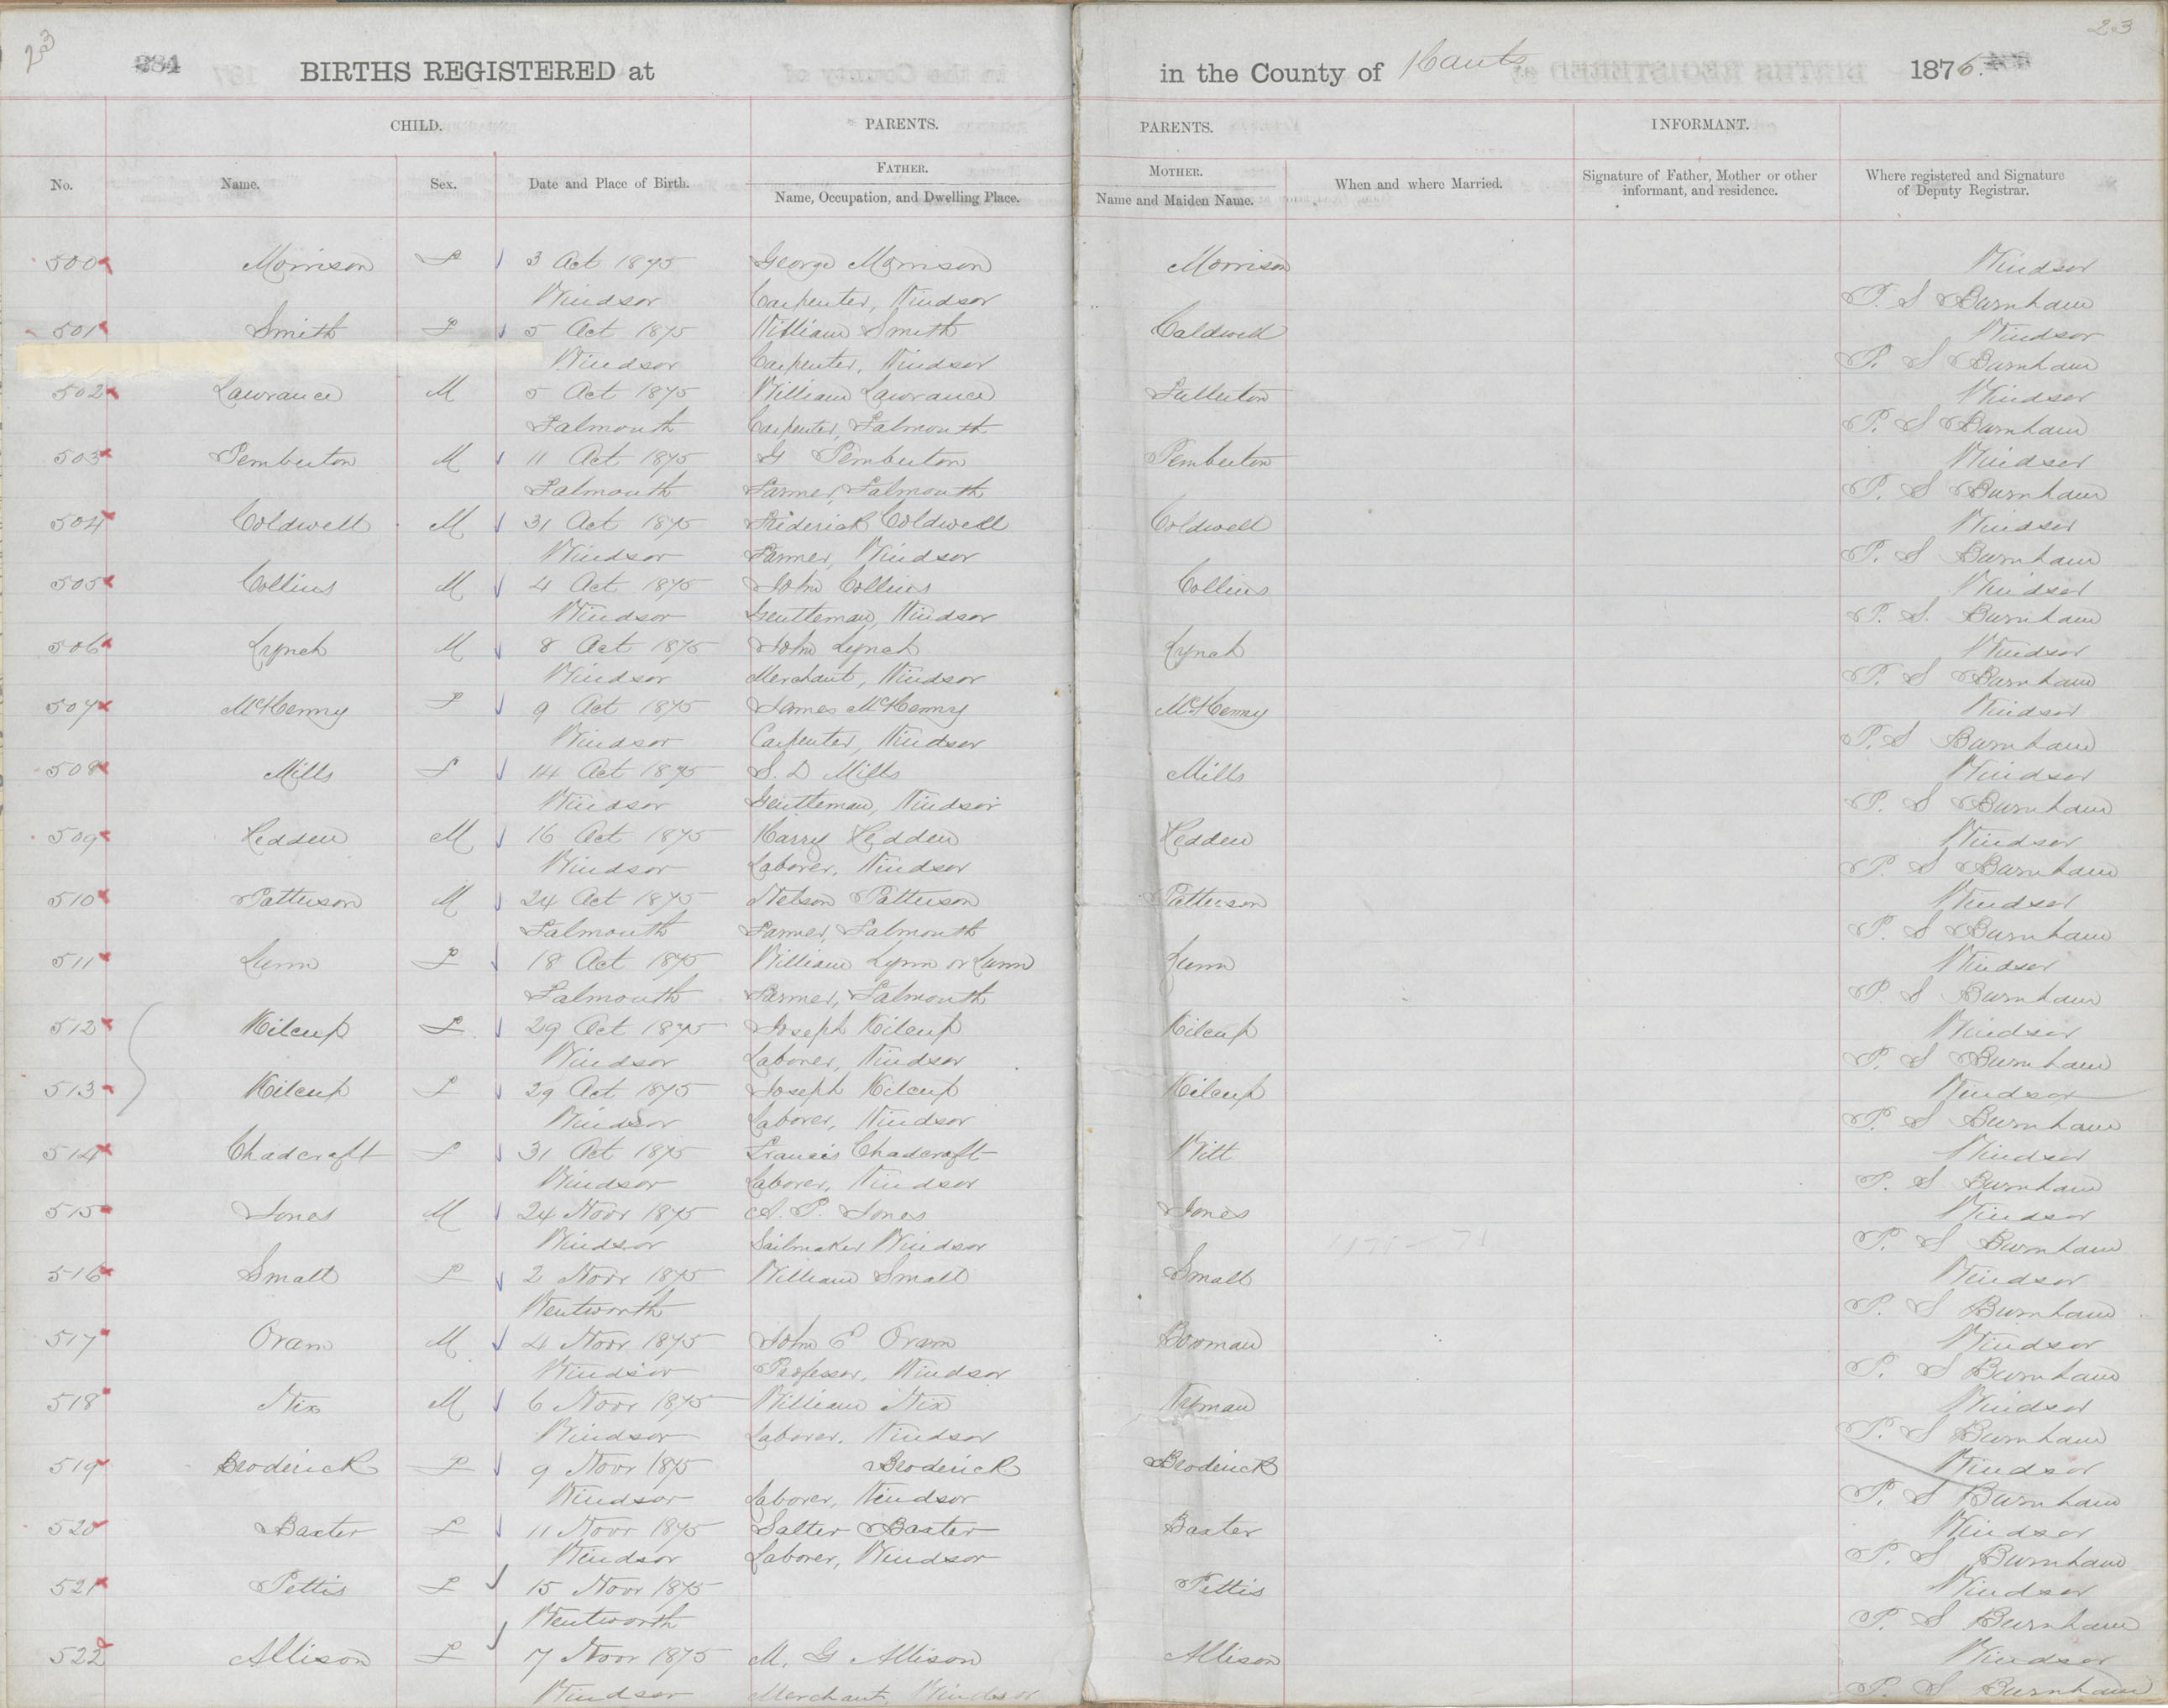 23 23
284 BIRTHS REGISTERED at in the County of Hants 1876.
CHILD. PARENTS. PARENTS. INFORMANT.
No. Name. Sex. Date and Place of Birth. FATHER. Name, Occupation, and Dwelling Place. MOTHER. Name and Maiden Name. When and where Married. Signature of Father, Mother or other informant, and residence. Where registered and Signature of Deputy Registrar.
500 Morrison F 3 Oct 1875 George Morrison Morrison Windsor
Windsor Carpenter, Windsor P. S Burnham
501 Smith F 5 Oct 1875 William Smith Caldwell Windsor
Windsor Carpenter, Windsor P. S Burnham
502 Lawrance M 5 Oct 1875 William Lawrance Fullerton Windsor
Falmouth Carpenter, Falmouth P. S Burnham
503 Pemberton M 11 Oct 1875 G Pemberton Pemberton Windsor
Falmouth Farmer, Falmouth P. S Burnham
504 Coldwell M 31 Oct 1875 Frederick Coldwell Coldwell Windsor
Windsor Farmer, Windsor P. S Burnham
505 Collins M 4 Oct 1875 John Collins Collins Windsor
Windsor Gentleman, Windsor P. S. Burnham
506 Lynch M 8 Oct 1875 John Lynch Lynch Windsor
Windsor Merchant, Windsor P. S Burnham
507 McHenry F 9 Oct 1875 James McHenry McHenry Windsor
Windsor Carpenter, Windsor P. S Burnham
508 Mills F 14 Oct 1875 S. D Mills Mills Windsor
Windsor Gentleman, Windsor P. S Burnham
509 Hedden M 16 Oct 1875 Harry Hedden Hedden Windsor
Windsor Laborer, Windsor P. S Burnham
510 Patterson M 24 Oct 1875 Nelson Patterson Patterson Windsor
Falmouth Farmer, Falmouth P. S Burnham
511 Lunn F 18 Oct 1875 William Lynn or Lunn Lunn Windsor
Falmouth Farmer, Falmouth P. S Burnham
512 Kilcup F 29 Oct 1875 Joseph Kilcup Kilcup Windsor
Windsor Laborer, Windsor P. S Burnham
513 Kilcup F 29 Oct 1875 Joseph Kilcup Kilcup Windsor
Windsor Laborer, Windsor P. S Burnham
514 Chadcraft F 31 Oct 1875 Francis Chadcraft Witt Windsor
Windsor Laborer, Windsor P. S Burnham
515 Jones M 24 Novr 1875 A. P. Jones Jones Windsor
Windsor Sailmaker Windsor P. S Burnham
516 Small F 2 Novr 1875 William Small Small Windsor
Wentworth P. S Burnham
517 Oram M 4 Novr 1875 John E Oram Bowman Windsor
Windsor Professor, Windsor P. S Burnham
518 Nix M 6 Novr 1875 William Nix Windsor
Windsor Laborer, Windsor P. S Burnham
519 Broderick F 9 Novr 1875 Broderick Broderick Windsor
Windsor Laborer, Windsor P. S Burnham
520 Baxter F 11 Novr 1875 Salter Baxter Baxter Windsor
Windsor Laborer, Windsor P. S Burnham
521 Pettis F 15 Novr 1875 Pettis Windsor
Wentworth P. S Burnham
522 Allison F 17 Novr 1875 M. G Allison Allison Windsor
Windsor Merchant, Windsor P. S Burnham